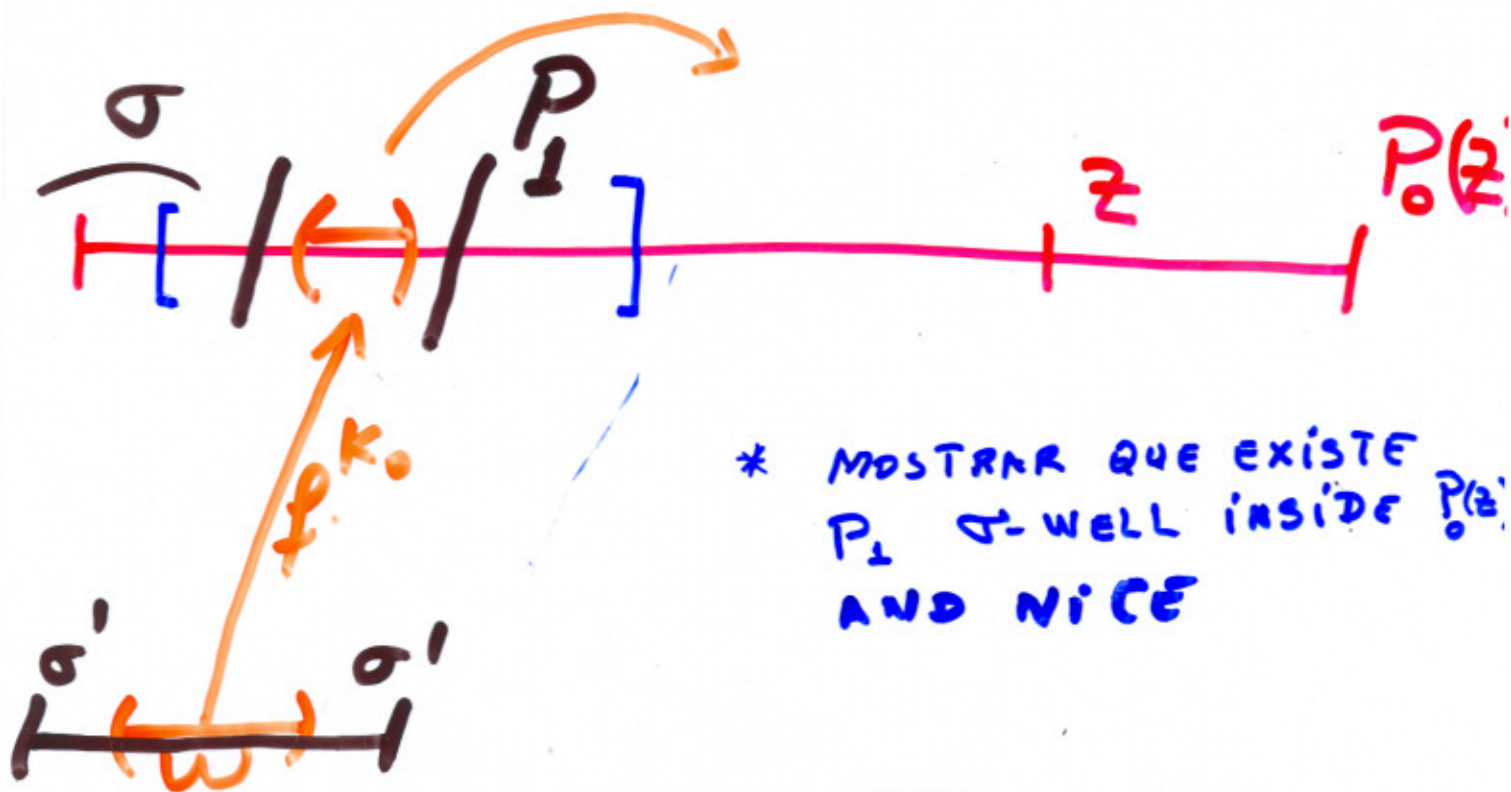 σ
P₁
Z
P₀(Z
f^K₀
* MOSTRAR QUE EXISTE
P₁ σ-WELL INSIDE P₀(Z
AND NICE
σ' σ'
ω